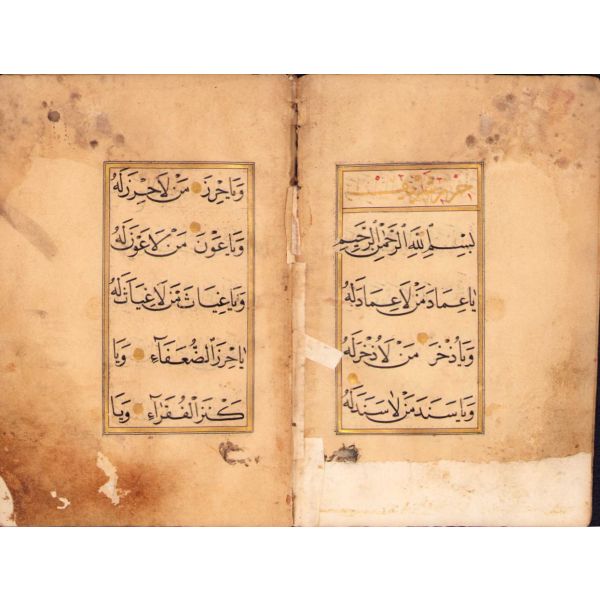 بِسْمِ اللّٰهِ الرَّحْمٰنِ الرَّحِيمِ
يَا عِمَادَ مَنْ لَا عِمَادَ لَهُ
وَيَا ذُخْرَ مَنْ لَا ذُخْرَ لَهُ
وَيَا سَنَدَ مَنْ لَا سَنَدَ لَهُ
وَيَا حِرْزَ مَنْ لَا حِرْزَ لَهُ
وَيَا عَوْنَ مَنْ لَا عَوْنَ لَهُ
وَيَا غِيَاثَ مَنْ لَا غِيَاثَ لَهُ
يَا حِرْزَ الضُّعَفَاءِ وَيَا
كَنْزَ الْفُقَرَاءِ وَيَا